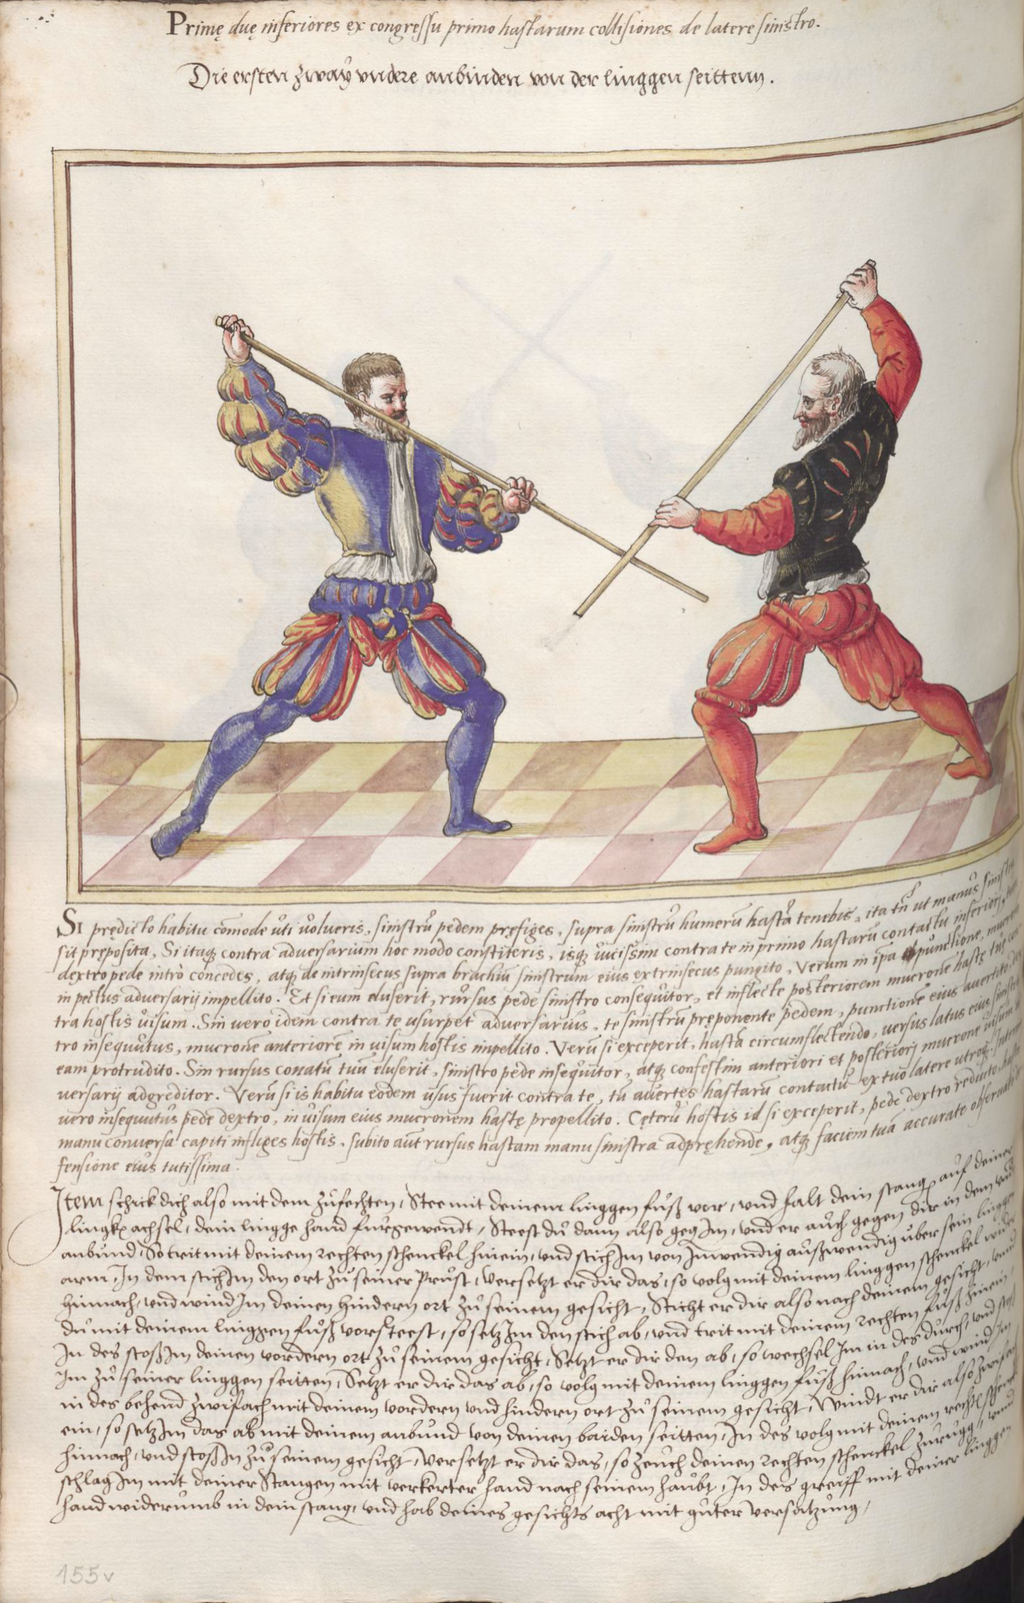 Primę duę inferiores ex congressu primo hastarum collisiones de latere sinistro.
Die ersten zwaÿ vndere anbinden von der linggen seittenn.
Si prędicto habitu com̄ode uti uolueris, sinistrũ pedem pręfiges, supra sinistrũ humerũ hastã tenebis, ita tñ ut manus sinistra
sit pręposita, Si itaq contra adversarium hoc modo constiteris, isq uicissim contra te in primo hastarũ contactu inferiori, tum
dextro pede intrò concedes, atq de intrinsecus supra brachiũ sinistrum eius extrinsecus pungito, Verum in ipa punctione, mucronem
in pectus adversarij impellito. Et si eum eluserit, rursus pede sinistro consequitor, et inflecte posteriorem mucronẽ hastę tuę con
tra hostis uisum. Sin vero idem contra te usurpet adversarius, te sinistrũ pręponente pedem, punctionẽ eius avertito
tro insequutus, mucronẽ anteriorẽ in uisum hostis impellito. Verũ si exceperit, hastã circumflectendo, versus latus eius sinistrum
eam protrudito. Sin rursus conatũ tuũ eluserit, sinistro pede insequitor, atq confestim anteriori et posteriorj mucrone uisum
versarij adgreditor. Verũ si is habitu eodem usus fuerit contra te, tũ auertes hastarũ contactũ ex tuo latere utroq,
uero insequutus pede dextro, in uisum eius mucronem hastę propellito. Cęterũ hostis id si exceperit, pede dextro reducto, hasta
manu conversa capiti infliges hostis, subito aut rursus hastam manu sinistra adpręhende, atq faciem tuã accurate obserua
fensione eius tutissima.
Item schick dich also mit dem zůfechten, Stee mit deinem linggen fůß vor, vnd halt dein stang auf deiner
linggẽ achsel, dein lingge hand furgewandt, Steest dũ dann also geg Im, vnd er aůch gegen dir in dem vndern
anbũnd, So trit mit deinem rechten schenckel hinein, vnd stich Im von Inwendig aůßwendig ůber sein linggen
arm, In dem stich Im den ort zů seiner Průst, Versetzt er dir das, so volg mit deinem linggen schenckel wider
hinnach, vnd wind Im deinen hindern ort zů seinem gesicht, Sticht er dir also nach deinem gesicht, vnd
dũ mit deinem linggen fůß vorsteest, so setz Im den stich ab, vnd trit mit deinem rechten fůß hinein,
In des stoß Im deinen vordern ort zů seinem gesicht, Setzt er dir den ab, so wechsel Im in des dũrch vnd stoß
Im zů seiner linggen seitten, Setzt er dir das ab, so volg mit deinem linggen fůß hinnach, vnd wind Im
in des behend zwifach mit deinem vordern vnd hindern ort zů seinem gesicht, Windt er dir also zwifach
ein, so setz Im das ab mit deinem anbũnd von deinen baiden seitten, In des volg mit deinem rechten schenckel
hinnach, vnd stoß In zů seinem gesicht, Versetzt er dir das, so zeůch deinen rechten schenckel zurũgg, vnnd
schlag In mit deiner Stangen mit verkerter hand nach seinem haũbt, In des greiff mit deiner linggen
hand widerũmb in dein stang, vnd hab deines gesichts acht mit gůter versatzũng,
155v